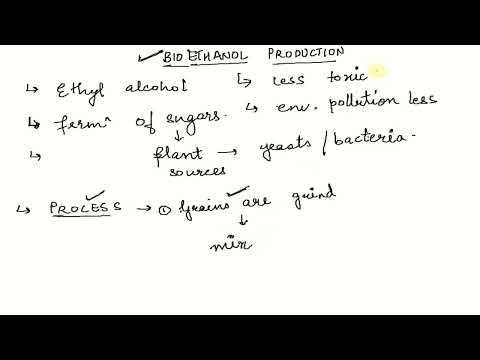 ✓BIOETHANOL PRODUCTION
↳ Ethyl alcohol ↳ less toxic
↳ fermⁿ of sugars. ↳ env. pollution less
↓
↳ plant → yeasts / bacteria.
sources
↳ PROCESS → ① Grains are grind
↓
mix